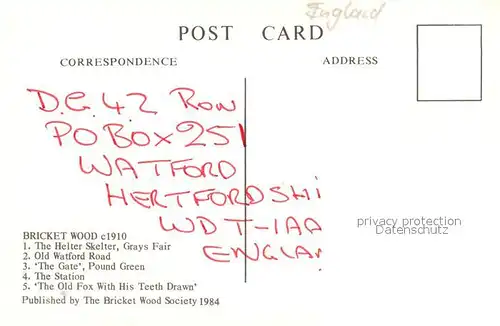 England
POST CARD
CORRESPONDENCE
ADDRESS
D.G. 42 Row
PO BOX 251
WATFORD
HERTFORDSHI
WD T-1AA
ENGLA
privacy protection
Datenschutz
BRICKET WOOD c1910
1. The Helter Skelter, Grays Fair
2. Old Watford Road
3. ‘The Gate’, Pound Green
4. The Station
5. ‘The Old Fox With His Teeth Drawn’
Published by The Bricket Wood Society 1984